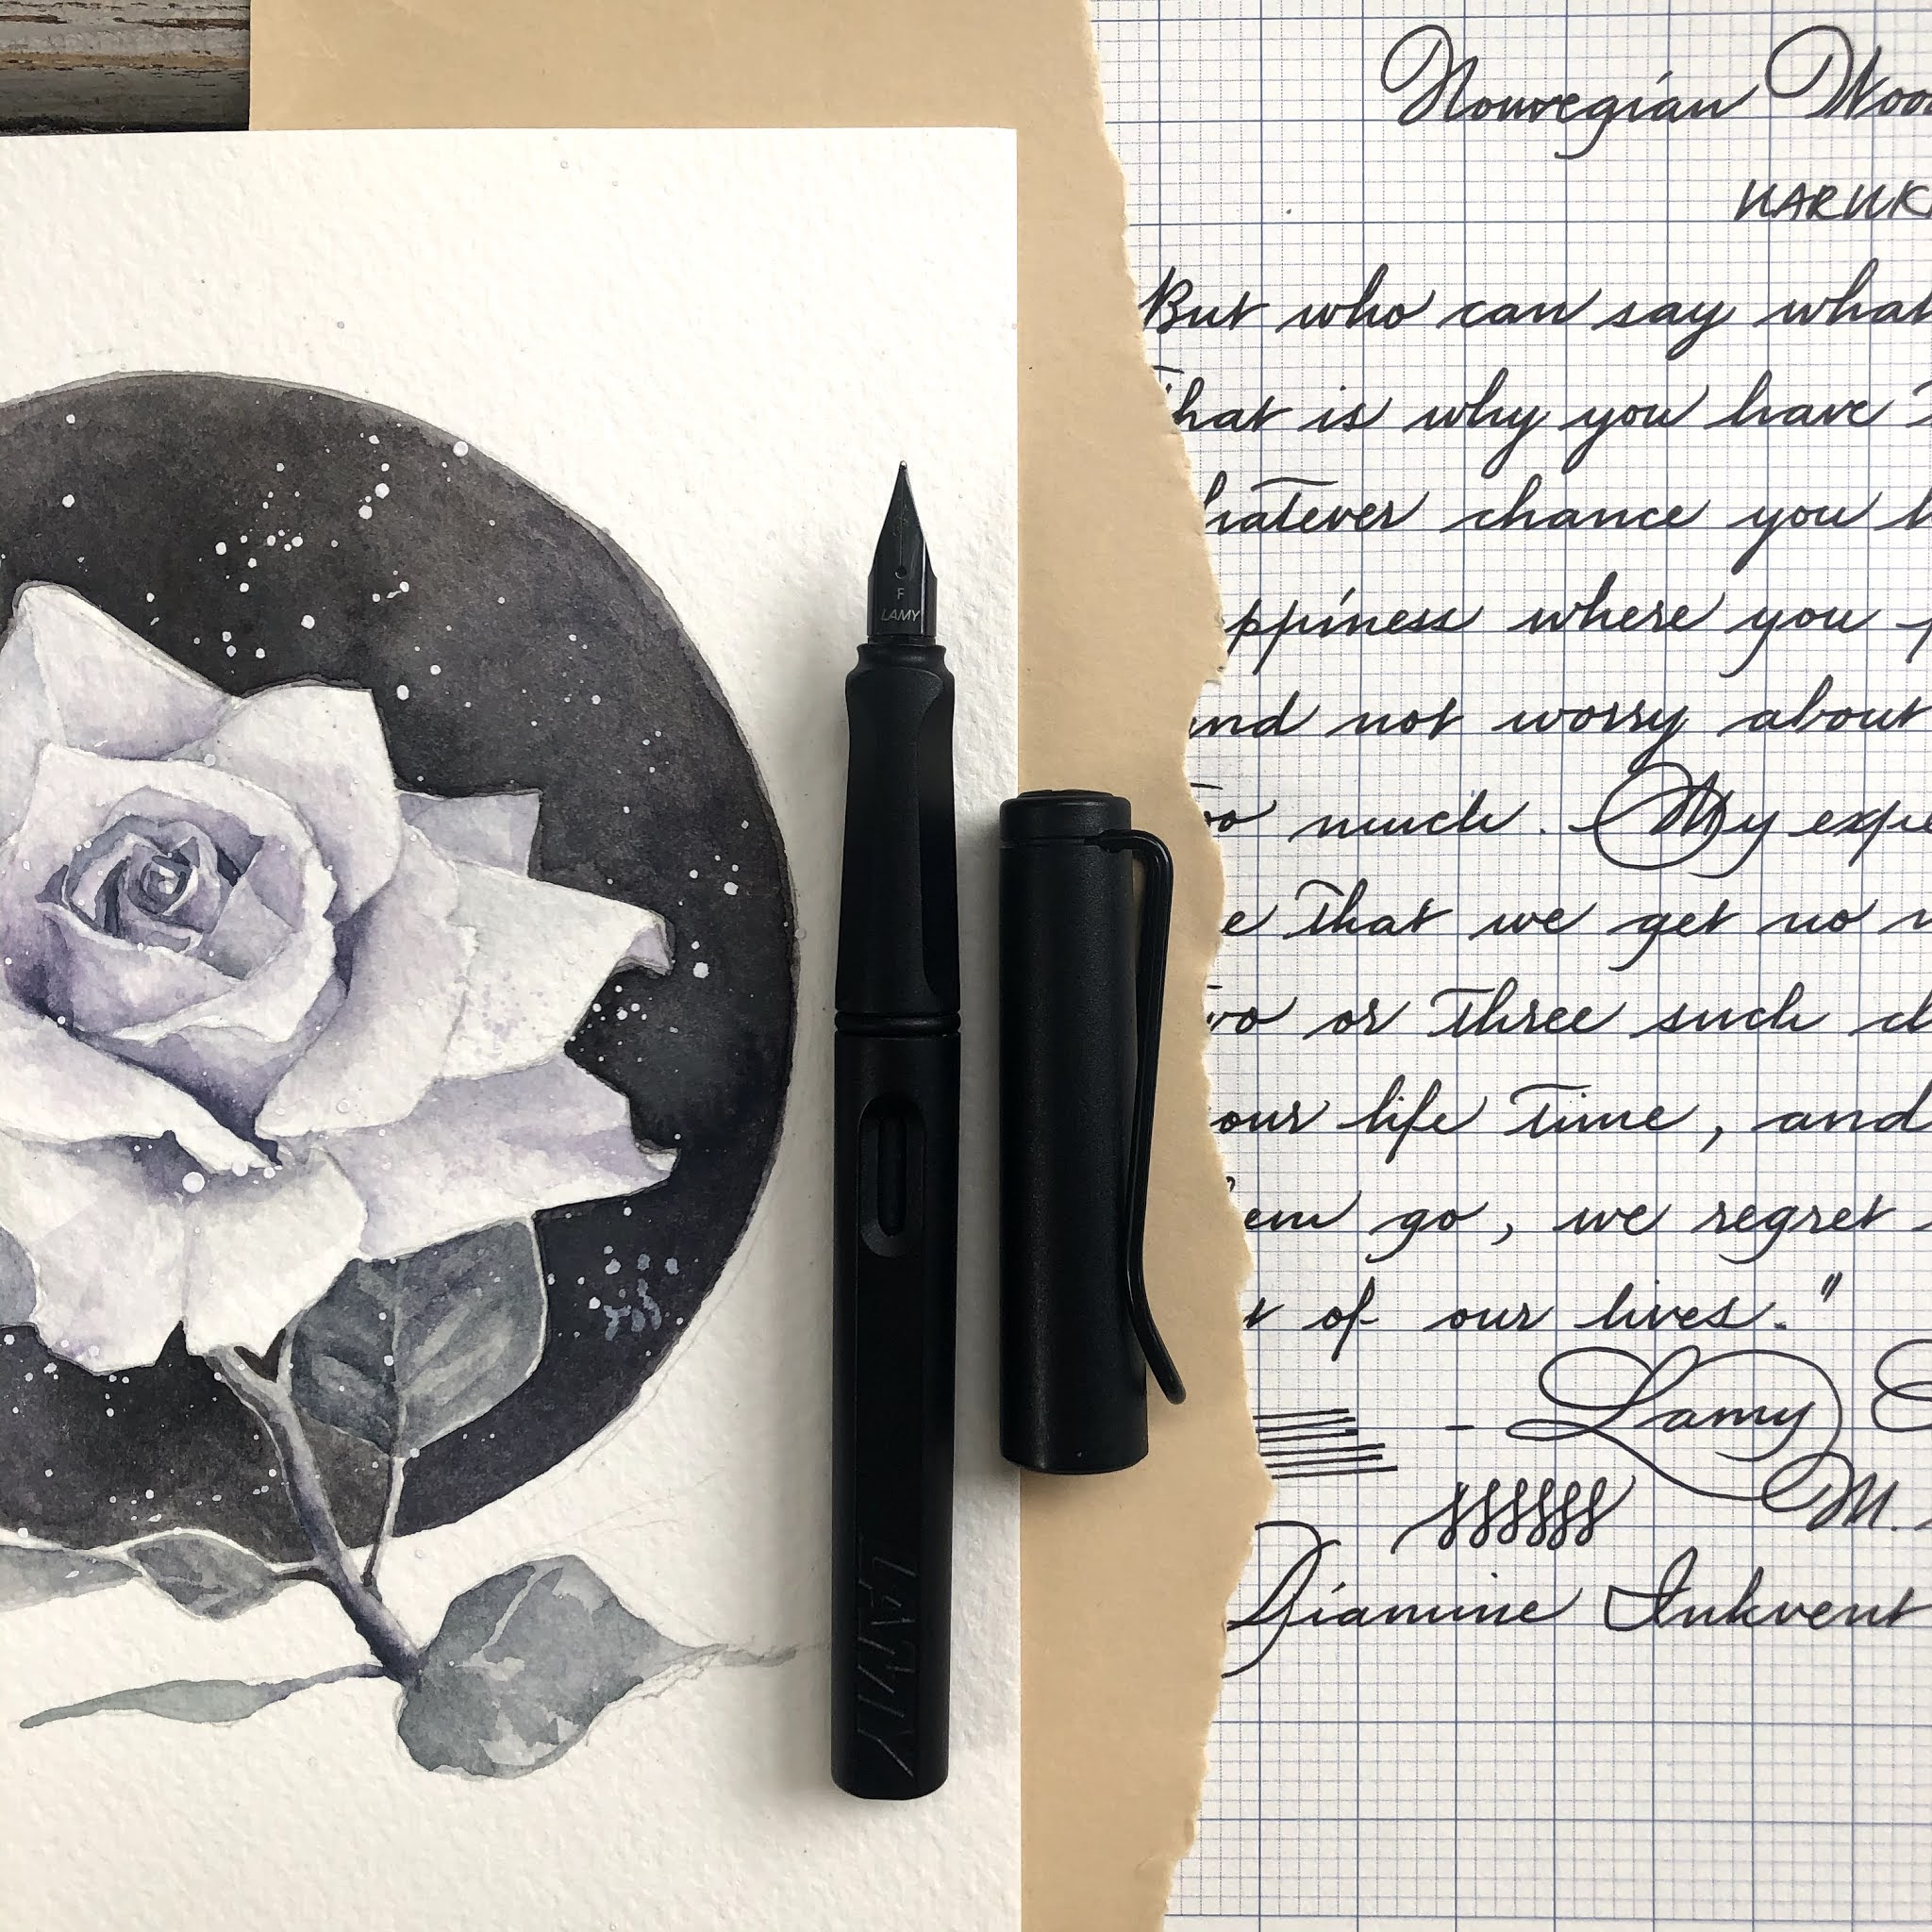 Norwegian
HARUKI
But who can say what
that is why you have
whatever chance you
ppiness where you
and not worry about
too much. My expe
e that we get no
two or three such
our life time, and
em go, we regret
t of our lives."
- Lamy
M.
Diamine Inkvent
F
LAMY
LAMY